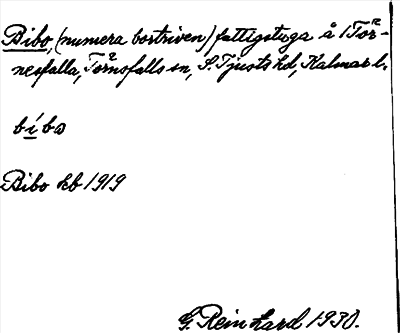 Bibo, (numera bortriven) fattigstuga å Tör-
nesfalla, Törnsfalls sn, S. Tjusts hd, Kalmar l.
bíbo
Bibo kb 1919
G. Reinhard 1930.